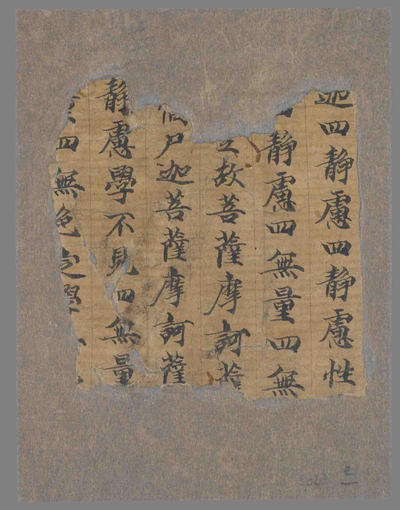 迦四靜慮四靜慮性
靜慮四無量四無
故菩薩摩訶薩
尸迦菩薩摩訶薩
靜慮學不見四無量
四無色定學